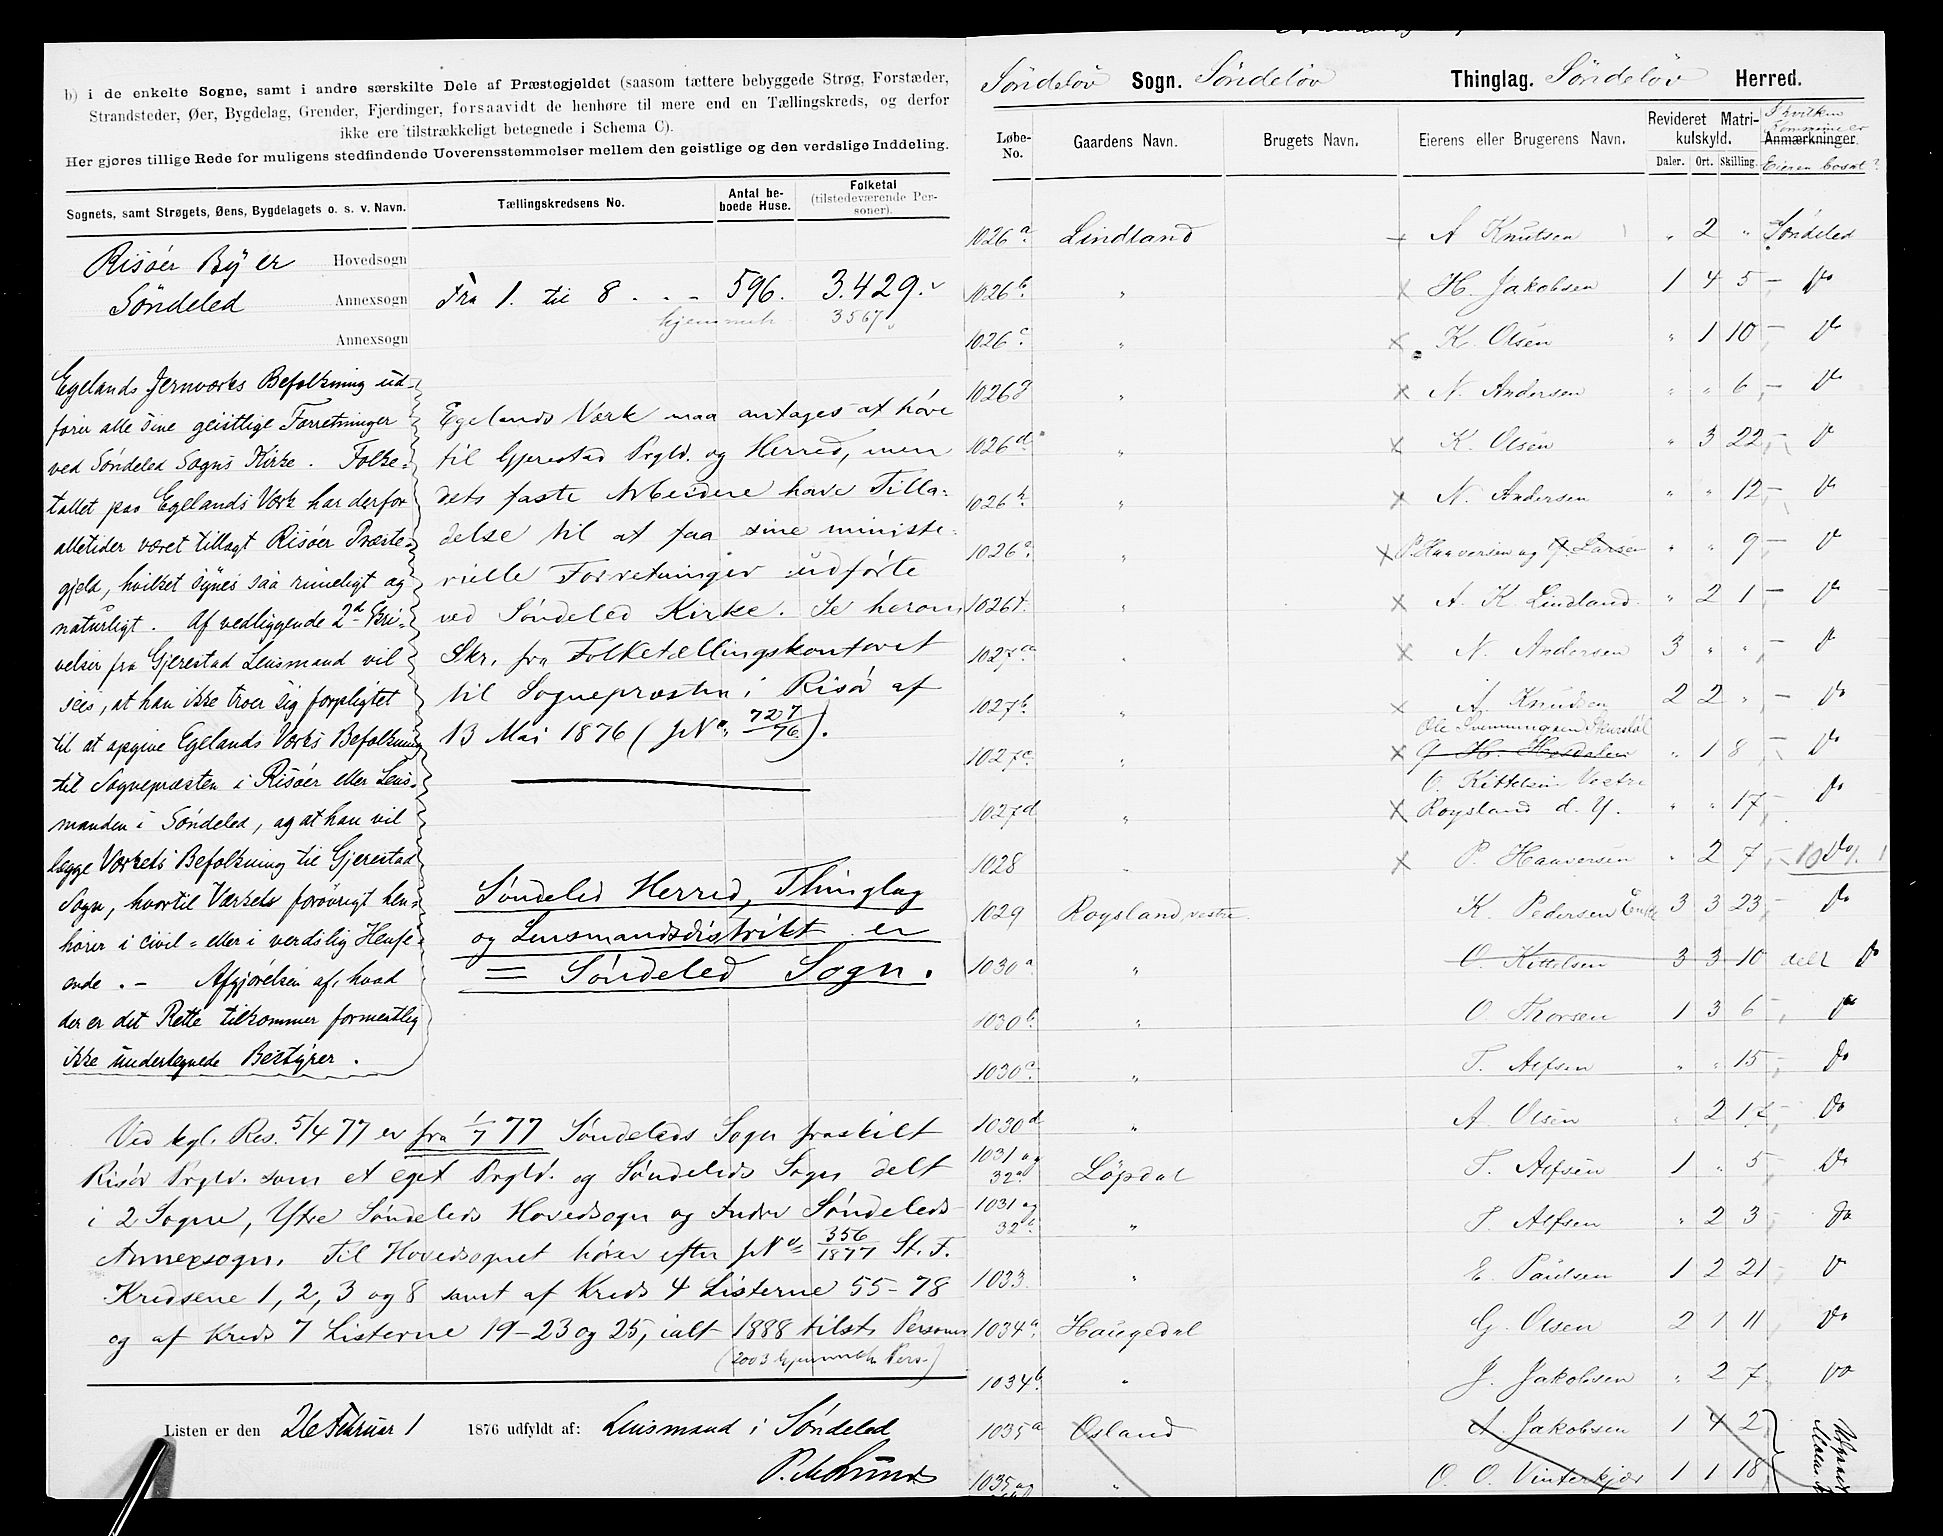 b) i de enkelte Sogne, samt i andre særskilte Dele af Præstegjeldet (saasom tættere bebyggede Strøg, Forstæder,
Strandsteder, Øer, Bygdelag, Grender, Fjerdinger, forsaavidt de henhøre til mere end en Tællingskreds, og derfor
ikke ere tilstrækkeligt betegnede i Schema C).
Her gjøres tillige Rede for muligens stedfindende Uoverensstemmelser mellem den geistlige og den verdslige Inddeling.
Sognets, samt Strøgets, Øens, Bygdelagets o. s. v. Navn. Tællingskredsens No. Antal beboede Huse. Folketal (tilstedeværende Personer).
Risöer By er Hovedsogn
Söndeled Annexsogn Fra 1. til 8 . . - 596. 3.429.
hjemmeh 3567
Annexsogn
Egelands Jernværks Befolkning ud-
förer alle sine geistlige Forretninger
ved Söndeled Sogns Kirke. Folke-
tallet paa Egelands Værk har derfor
alletider været tillagt Risöer Præste-
gjeld, hvilket synes saa rimeligt og
naturligt. Af vedliggende 2d Skri-
velser fra Gjerestad Lensmand vil
sees, at han ikke troer sig forpligtet
til at opgive Egelands Værks Befolkning
til Sognepræsten i Risöer eller Lens-
manden i Söndeled, og at han vil
lægge Værkets Befolkning til Gjerestad
Sogn, hvortil Værkets forövrigt hen-
hörer i civil- eller i verdslig Hense-
ende. - Afgjörelsen af, hvad
der er det Rette tilkommer formentlig
ikke undertegnede Bestyrer.
Egelands Værk maa antages at höre
til Gjerestad Prgld. og Herred, men
dets faste Arbeidere have Tilla-
delse til at faa sine ministe-
rielle Forretninger udförte
ved Söndeled Kirke. Se herom
Skr. fra Folketællingskontoret
til Sognepræsten i Risör af
13 Mai 1876 (JNo. 727/76).
Söndeled Herred, Thinglag
og Lensmandsdistrikt er
= Söndeled Sogn.
Ved kgl. Res. 5/4 77 er fra 1/7 77 Söndeleds Sogn fraskilt
Risör Prgld. som et eget Prgld. og Söndeleds Sogn delt
i 2 Sogne, Ytre Söndeleds Hovedsogn og Indre Söndeleds
Annexsogn. Til Hovedsognet hörer efter JNo 356/1877 St. F.
Kredsene 1, 2, 3 og 8 samt af Kreds 4 Listerne 55-78
og af Kreds 7 Listerne 19-23 og 25, ialt 1888 tilst. Personer
(2003 hjemmeh. Pers.)
Listen er den 26 Februar 1876 udfyldt af: Lensmand i Söndeled
Söndelöv Sogn. Söndelöv Thinglag. Söndelöv Herred.
Løbe-No. Gaardens Navn. Brugets Navn. Eierens eller Brugerens Navn. Revideret Matrikulskyld. Daler. Ort. Skilling. Anmærkninger.
I hvilken Kommune er Eieren bosat?
1026 a. Lindland A Knutsen " 2 " Söndeled
1026 b. " H. Jakobsen 1 4 5 - Do
1026 c. " K. Olsen " 1 10 - Do
1026 " N. Andersen " " 6 - Do
1026 d. " K. Olsen " 3 22 - Do
1026 " N. Andersen " " 12 - Do
1026 " P. Haaversen og Larsen " " 9 - Do
1026 f. " A. K. Lindland " 2 1 - Do
1027 a " N. Andersen 3 " " - Do
1027 b. " A. Knudsen 2 2 " - Do
Ole
1027 c. " H. " 1 8 - Do
O. Kittelsen Vestre
1027 d " Roysland d. Y. " " 17 - Do
1028 " P. Haaversen " 2 7 - Do
1029 Roysland vestre K. Pedersen Enke 3 3 23 - Do
1030 a. " O. Kittelsen 3 3 10 delt Do
1030 b. " O. Thorsen 1 3 6 - Do
1030 c. " T. Alfsen " " 15 - Do
1030 d " A Olsen " 2 Do
1031 og 32 a Löpdal T. Alfsen 1 " 5 - Do
1031 og 32 b. " T. Alfsen " 2 3 - Do
1033 " E. Paulsen 1 2 21 - Do
1034 a. Haugedal G. Olsen 2 1 11 Do
1034 b. " J. Jakobsen " 2 7 Do
1035 a Osland A. Jakobsen 1 4 2
1035 og " O. O. Vinterkjær 1 1 18